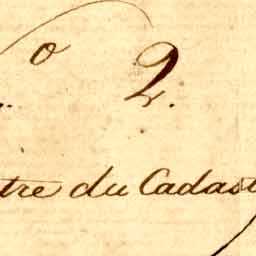 º 2.
tre du Cadast